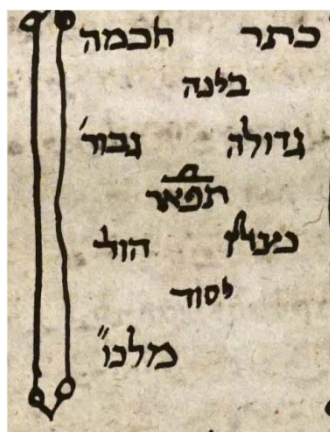 כתר חכמה
בינה
גדולה גבור'
תפאר
נצח הוד
יסוד
מלכו"